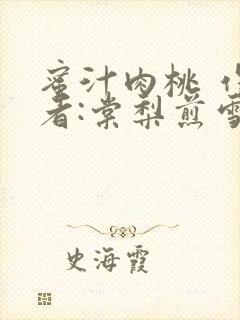 蜜汁肉桃
者:棠梨煎雪
史海霞